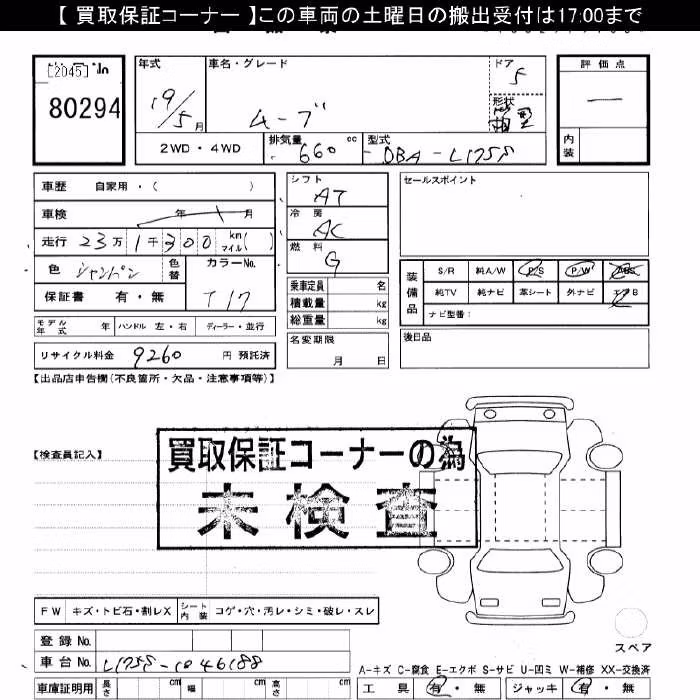 【 買取保証コーナー 】この車両の土曜日の搬出受付は17:00まで
[2045] No
80294
年式
19/5月
車名・グレード
ムーブ
ドア
5
形状
箱型
評価点
内装
2WD・4WD
排気量
660 cc
型式
DBA-L175S
車歴 自家用・( )
車検 年 月
走行 23万1千300 km マイル( )
色 シャンパン 色替
カラーNo.
T17
保証書 有・無
モデル年式 年 ハンドル 左・右 ディーラー・並行
リサイクル料金 9260 円 預託済
シフト
AT
冷房
AC
燃料
G
乗車定員 名
積載量 kg
総重量 kg
名変期限
月 日
セールスポイント
装備品
S/R 純A/W P/S P/W ABS
純TV 純ナビ 革シート 外ナビ エアB
ナビ型番:
後日品
【出品店申告欄(不良箇所・欠品・注意事項等)】
【検査員記入】
買取保証コーナーの為
未検査
FW キズ・トビ石・割レX シート内装 コゲ・穴・汚レ・シミ・破レ・スレ
登録No.
車台No. L175S-1046188
車庫証明用 長さ cm 幅 cm 高さ cm
スペア
A-キズ C-腐食 E-エクボ S-サビ U-凹ミ W-補修 XX-交換済
工具 有・無 ジャッキ 有・無